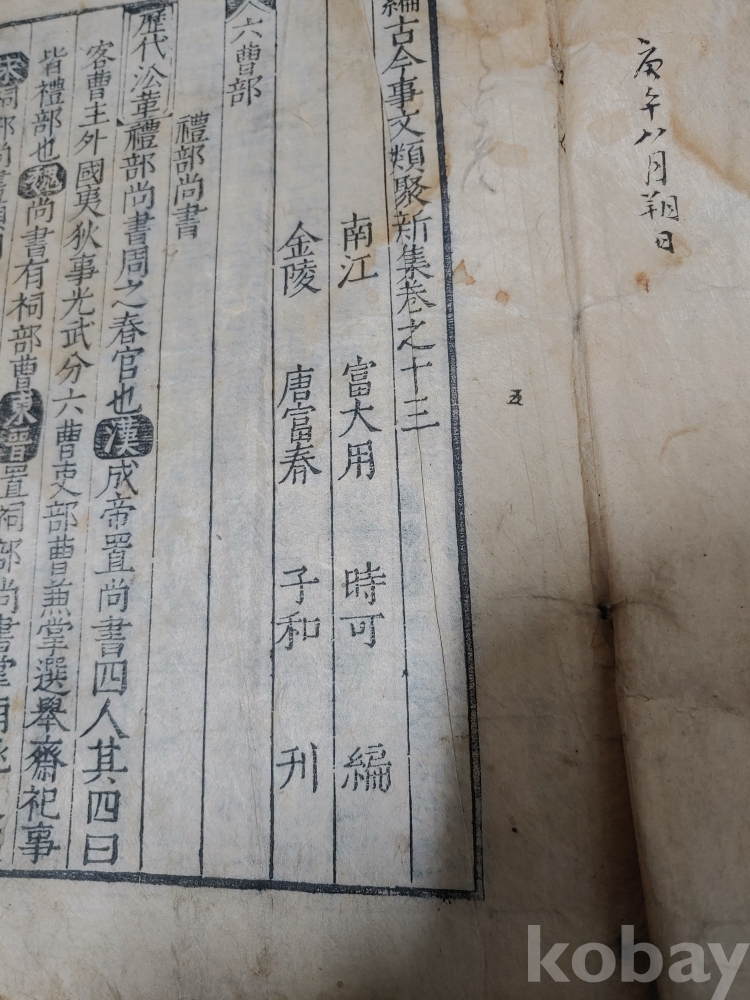 庚午八月朔日
五
編古今事文類聚新集卷之十三
南江 富大用 時可 編
金陵 唐富春 子和 刋
六曹部
禮部尚書
歷代沿革禮部尚書周之春官也漢成帝置尚書四人其四曰
客曹主外國夷狄事光武分六曹吏部曹兼掌選舉齋祀事
皆禮部也魏尚書有祠部曹東晉置祠部尚書掌廟祧
宋祠部尚書領
kobay